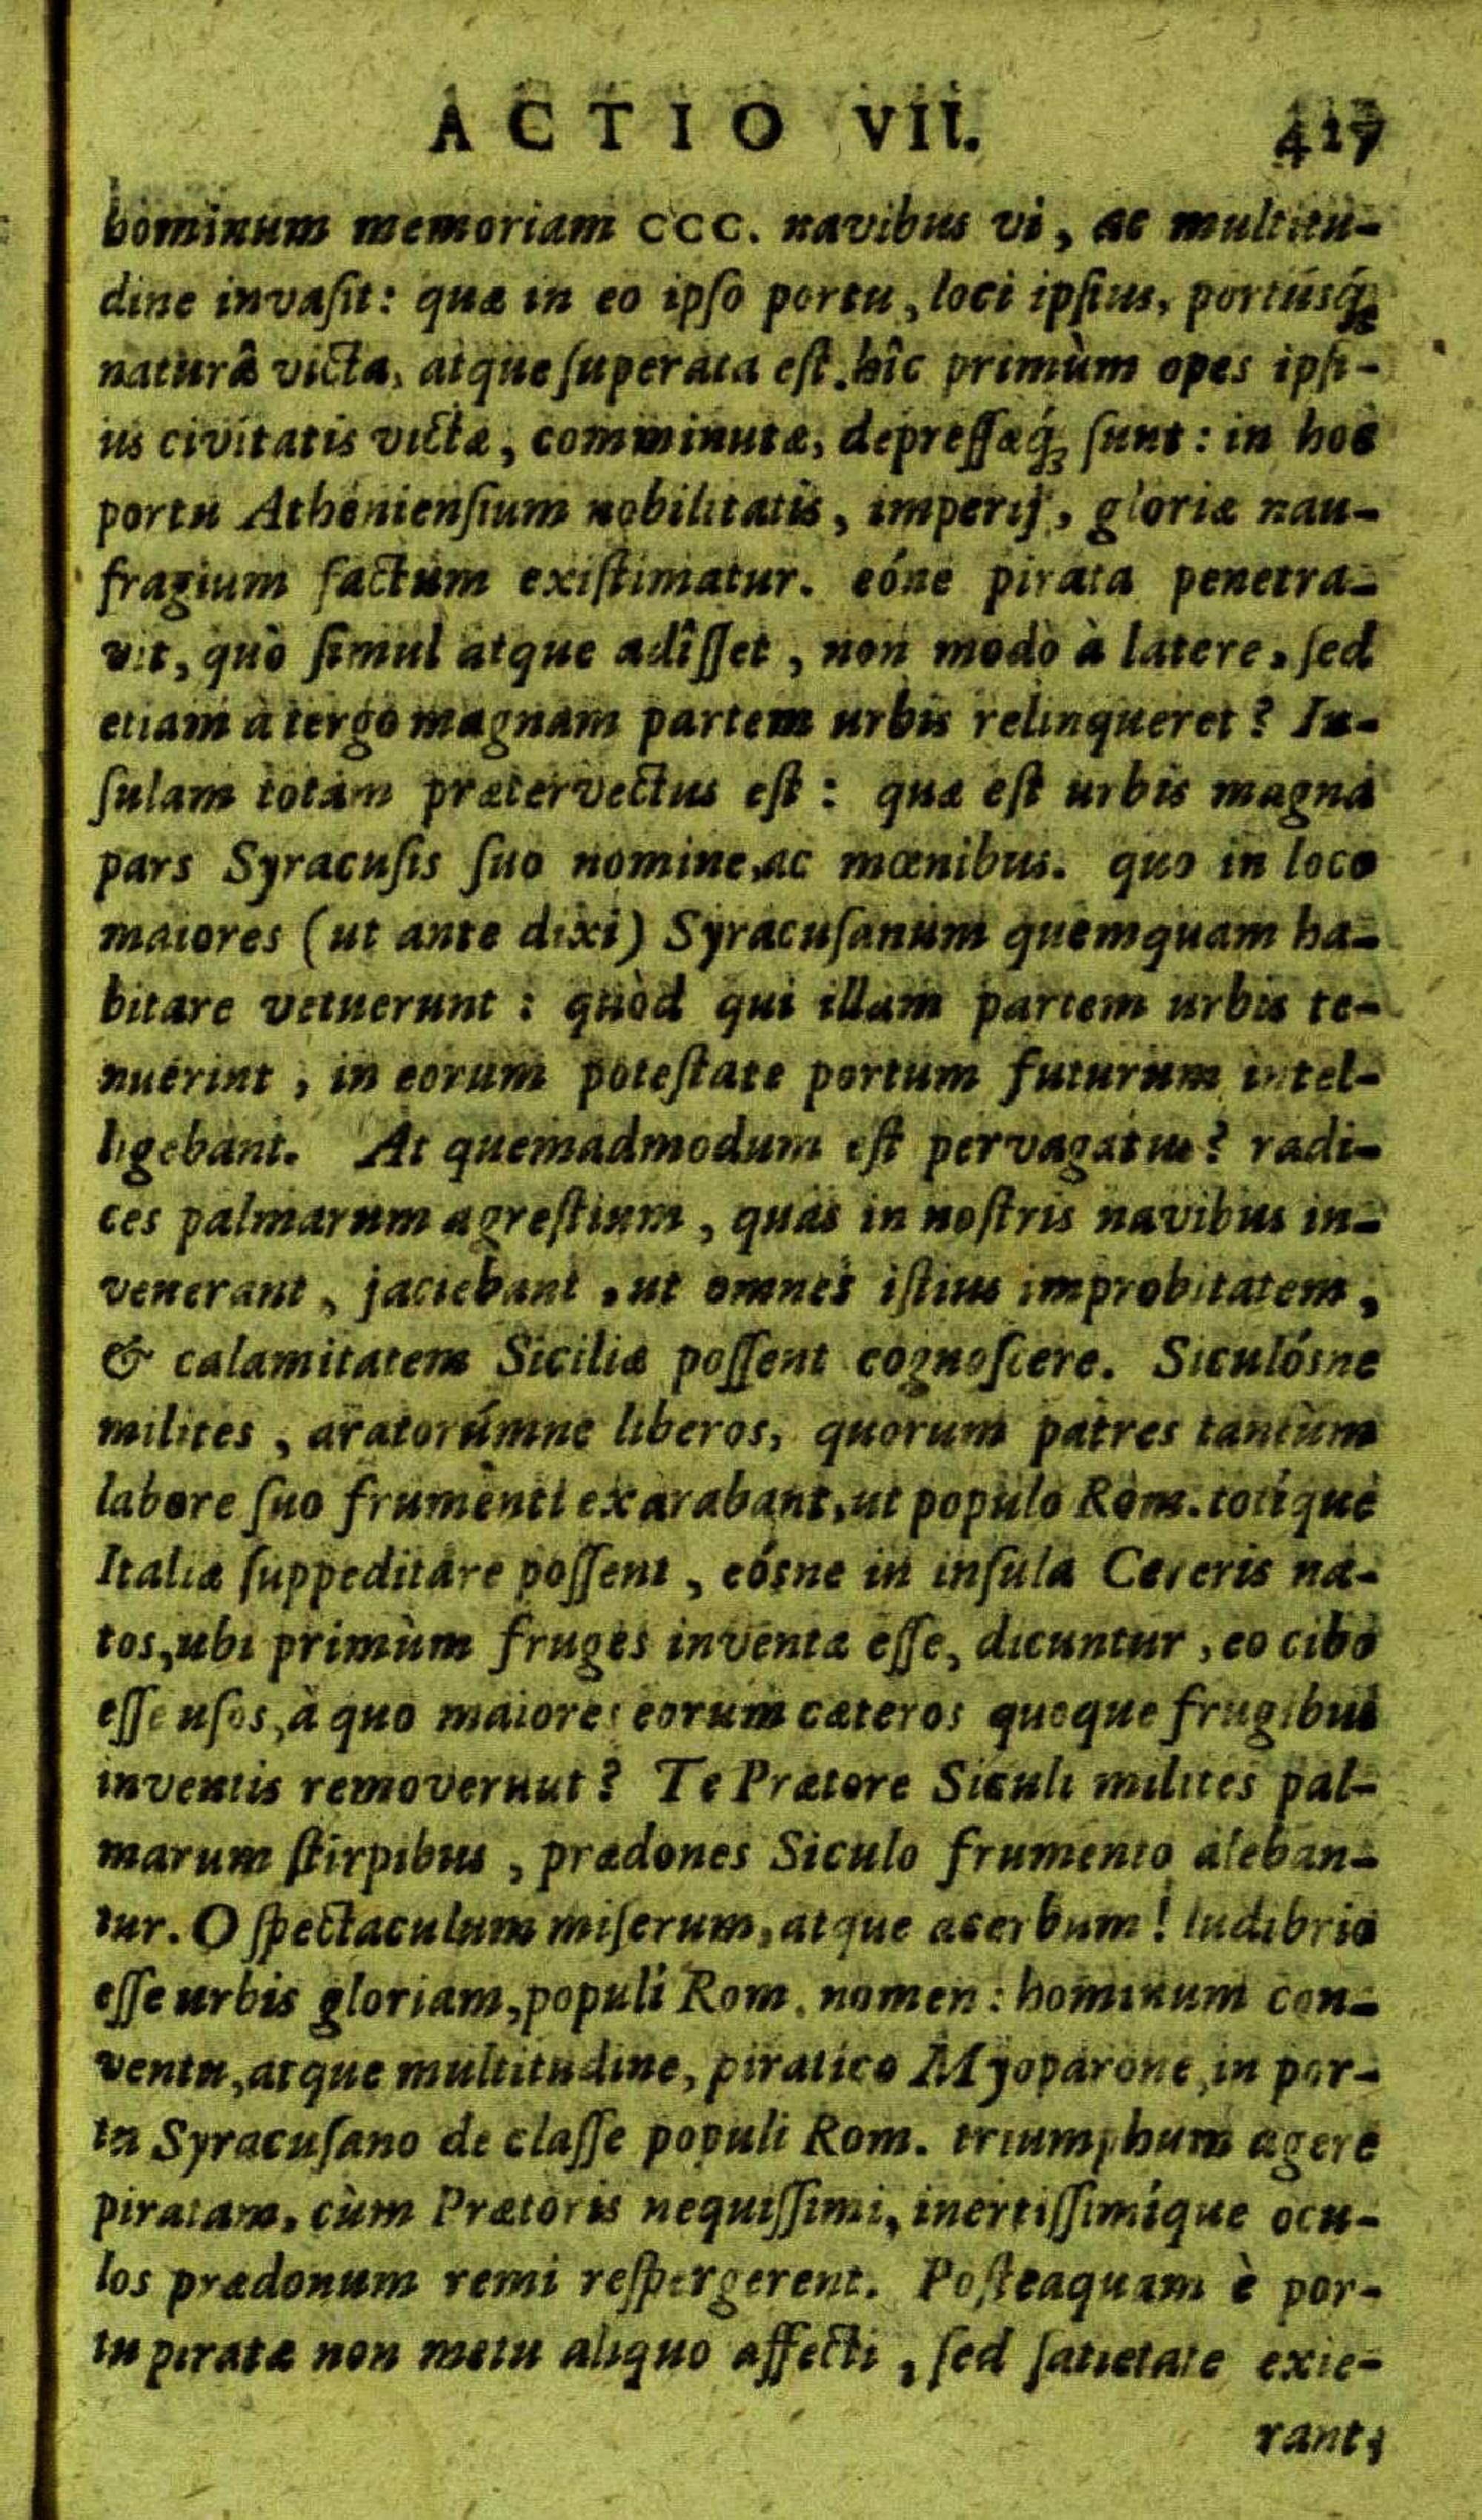 ACTIO VII. 417
hominum memoriam CCC. navibus vi, ac multitu-
dine invaſit: quæ in eo ipſo portu, loci ipſius, portúsq́;
naturâ victa, atque ſuperata eſt. hîc primùm opes ipſi-
us civitatis victæ, comminutæ, depreſſæq́; ſunt: in hoc
portu Athenienſium nobilitatis, imperij, gloriæ nau-
fragium factum exiſtimatur. eóne pirata penetra-
vit, quò ſimul atque adîſſet, non modò à latere, ſed
etiam à tergo magnam partem urbis relinqueret? In-
ſulam totam prætervectus eſt: quæ eſt urbis magna
pars Syracuſis ſuo nomine, ac mœnibus. quo in loco
maiores (ut ante dixi) Syracuſanum quemquam ha-
bitare vetuerunt: quòd qui illam partem urbis te-
nuerint, in eorum poteſtate portum futurum intel-
ligebant. At quemadmodum eſt pervagatus? radi-
ces palmarum agreſtium, quas in noſtris navibus in-
venerant, jaciebant, ut omnes iſtius improbitatem,
& calamitatem Siciliæ poſſent cognoſcere. Siculósne
milites, aratorúmne liberos, quorum patres tantùm
labore ſuo frumenti exarabant, ut populo Rom. totíque
Italiæ ſuppeditare poſſent, eósne in inſula Cereris na-
tos, ubi primùm fruges inventæ eſſe, dicuntur, eo cibo
eſſe uſos, à quo maiores eorum cæteros quoque frugibus
inventis removernut? Te Prætore Siculi milites pal-
marum ſtirpibus, prædones Siculo frumento aleban-
tur. O ſpectaculum miſerum, atque acerbum! ludibrio
eſſe urbis gloriam, populi Rom. nomen: hominum con-
ventu, atque multitudine, piratico Myoparone, in por-
tu Syracuſano de claſſe populi Rom. triumphum agere
piratam, cùm Prætoris nequiſſimi, inertiſſimíque ocu-
los prædonum remi reſpergerent. Poſteaquam è por-
tu piratæ non metu aliquo affecti, ſed ſatietate exie-
rant,